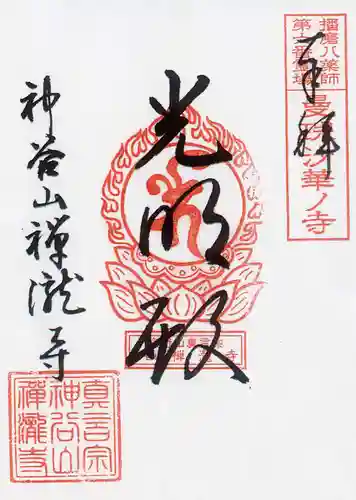 播磨八薬師
第六番霊場
曼沙華ノ寺
奉拝
光明殿
神谷山禅瀧寺
真言宗
神谷山
禅瀧寺